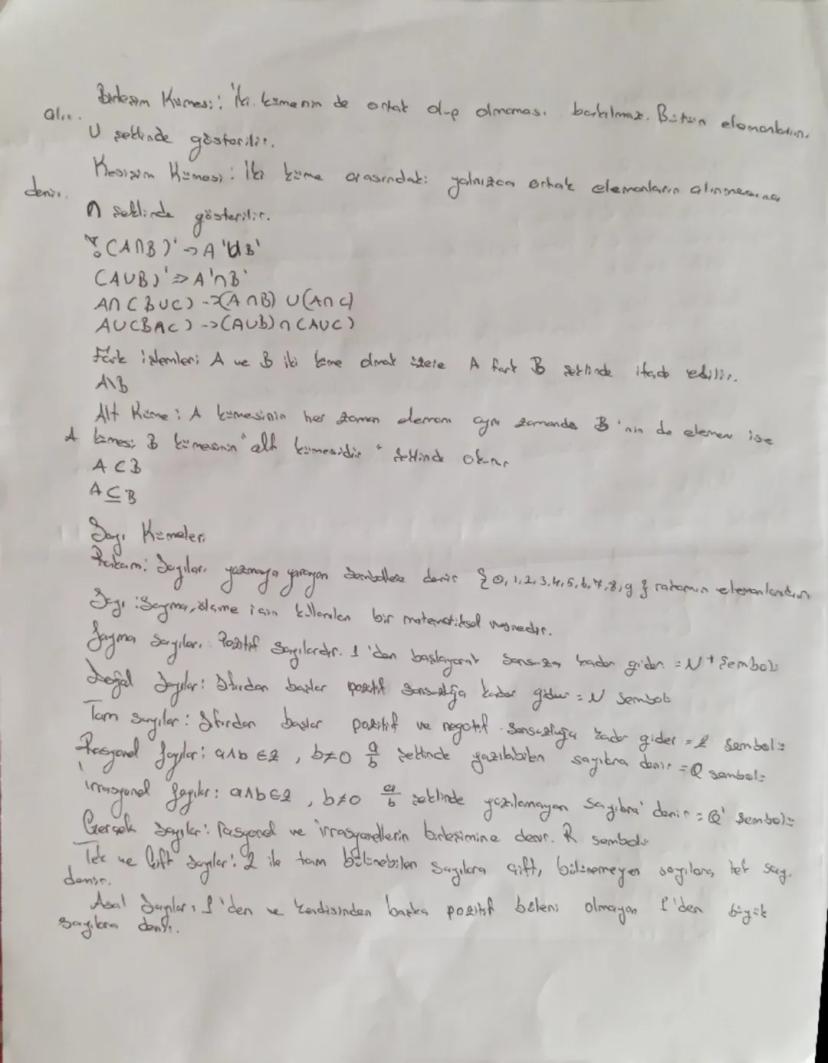 Birleşim Kümesi: İki kümenin de ortak olup olmaması bakılmaz. Bütün elemanların
alır.
U şeklinde gösterilir.
Kesişim Kümesi: İki küme arasındaki yalnızca ortak elemanların alınmasına
denir.
∩ şeklinde gösterilir.
(A∩B)' -> A'UB'
(AUB)' => A'∩B'
A∩(BUC) ->(A∩B) U(A∩C)
AU(B∩C) ->(AUb)∩(AUC)
Fark işlemleri A ve B iki küme olmak üzere A fark B şeklinde ifade edilir.
A\B
Alt Küme: A kümesinin her zaman elemanı aynı zamanda B'nin de elemanı ise
A kümesi B kümesinin "alt kümesidir" şeklinde okunur
A⊂B
A⊆B
Sayı Kümeleri
Rakam: Sayıları yazmaya yarayan sembollere denir {0,1,2,3,4,5,6,7,8,9} rakamın elemanlarıdır
Sayı: Sayma, ölçme için kullanılan bir matematiksel nesnedir.
Sayma Sayıları, Pozitif sayılardır. 1'den başlayarak sonsuza kadar gider = N+ Sembolü
Doğal Sayılar: Sıfırdan başlar pozitif sonsuzluğa kadar gider = N Sembolü
Tam sayılar: Sıfırdan başlar pozitif ve negatif sonsuzluğa kadar gider = Z sembolü
Rasyonel Sayılar: a∧b ∈Z, b≠0 a/b şeklinde yazılabilen sayılara denir = Q sembolü
İrrasyonel Sayılar: a∧b∈Z, b≠0 a/b şeklinde yazılamayan sayılara denir = Q' Sembolü
Gerçek Sayılar: Rasyonel ve irrasyonellerin birleşimine denir. R sembolü
Tek ve Çift Sayılar: 2 ile tam bölünebilen sayılara çift, bölünemeyen sayılara tek sayı
denir.
Asal Sayılar, 1'den ve kendisinden başka pozitif böleni olmayan 1'den büyük
sayılara denir.